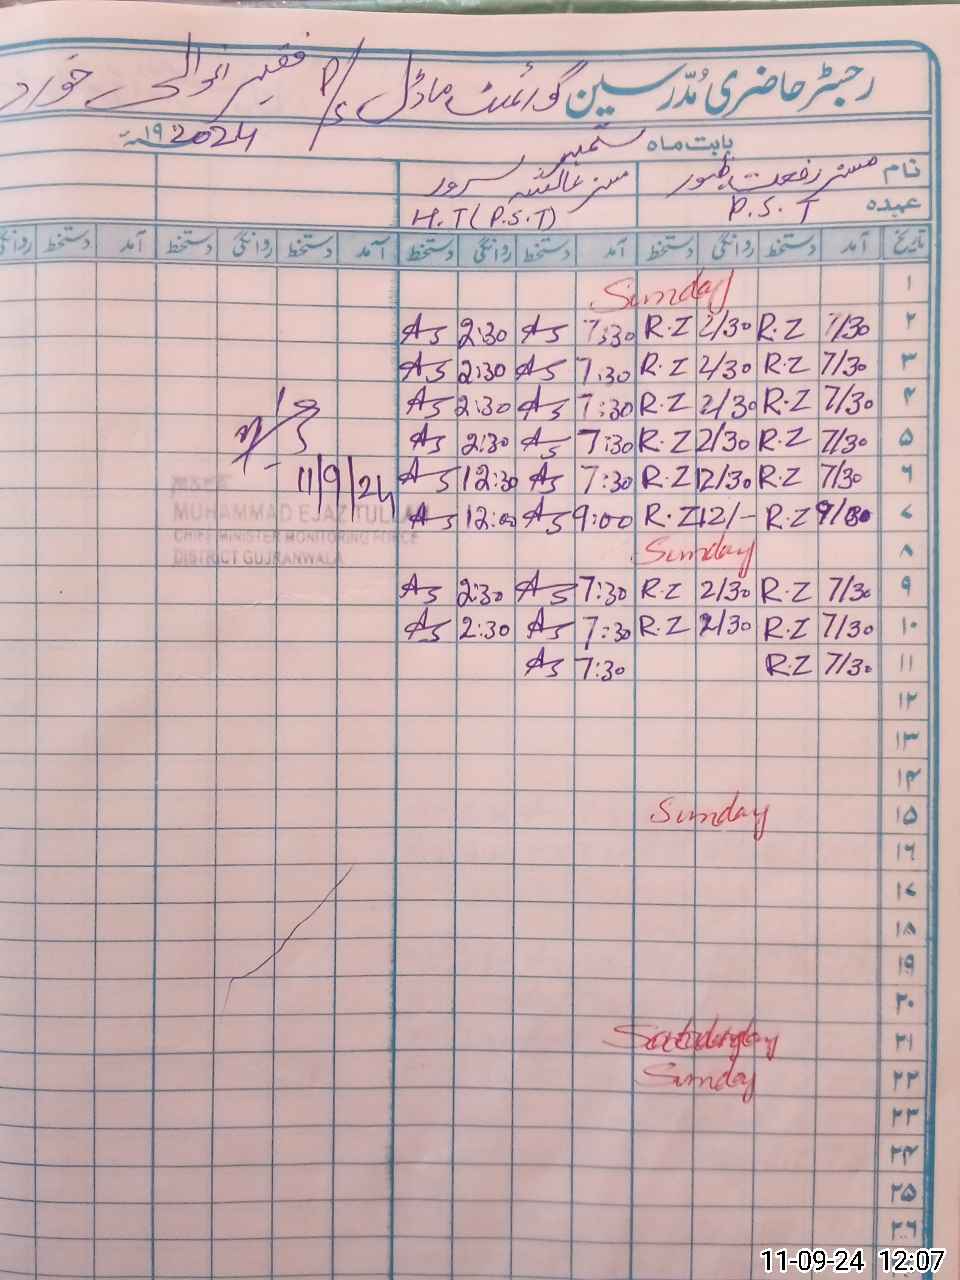 رجسٹر حاضری مُدّرسین گورنمنٹ ماڈل P/S فقیر انوالی خورد
بابت ماہ ستمبر ۱۹ 2024ء
نام مسز رفعت ظہور مسز عائشہ سرور
عہدہ P.S.T H.T (P.S.T)
تاریخ آمد دستخط روانگی دستخط آمد دستخط روانگی دستخط آمد دستخط روانگی دستخط آمد دستخط روانگی
۱ Sunday
۲ 7/30 R.Z 2/30 R.Z 7:30 AS 2:30 AS
۳ 7/30 R.Z 2/30 R.Z 7:30 AS 2:30 AS
۴ 7/30 R.Z 2/30 R.Z 7:30 AS 2:30 AS
۵ 7/30 R.Z 2/30 R.Z 7:30 AS 2:30 AS
۶ 7/30 R.Z 12/30 R.Z 7:30 AS 12:30 AS
۷ 9/00 R.Z 12/- R.Z 9:00 AS 12:00 AS
11/9/24
MUHAMMAD EJAZ TULLAH
CHIEF MINISTER MONITORING FORCE
DISTRICT GUJRANWALA
۸ Sunday
۹ 7/30 R.Z 2/30 R.Z 7:30 AS 2:30 AS
۱۰ 7/30 R.Z 2/30 R.Z 7:30 AS 2:30 AS
۱۱ 7/30 R.Z 7:30 AS
۱۲
۱۳
۱۴
۱۵ Sunday
۱۶
۱۷
۱۸
۱۹
۲۰
۲۱
۲۲ Sunday
۲۳
۲۴
۲۵
۲۶
11-09-24 12:07